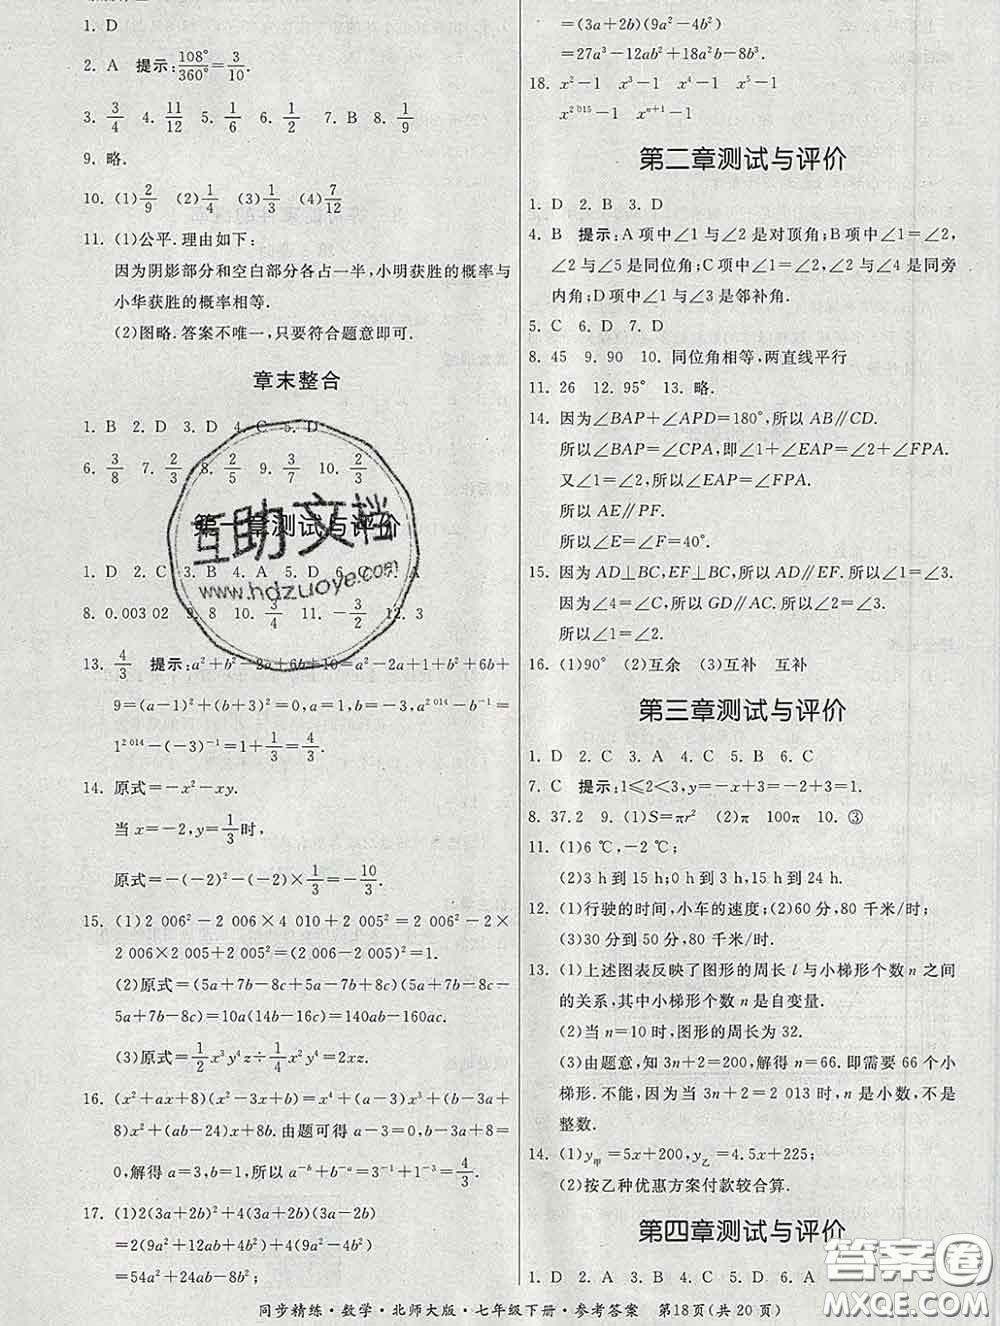 1. D
2. A　提示:108°/360°=3/10.
3. 3/4　4. 11/12　5. 1/6　6. 1/2　7. B　8. 1/9
9. 略.
10. (1)2/9　(2)1/4　(3)1/3　(4)7/12
11. (1)公平.理由如下:
因为阴影部分和空白部分各占一半,小明获胜的概率与
小华获胜的概率相等.
(2)图略.答案不唯一,只要符合题意即可.
章末整合
1. B　2. D　3. D　4. C　5. D
6. 3/8　7. 2/3　8. 2/5　9. 3/7　10. 2/3
第一章测试与评价
1. D　2. C　3. B　4. A　5. D　6. C　7. A
8. 0.003 02　9. 8　10. 3/4　11. -3/2　12. 3
13. 4/3　提示:a²+b²-2a+6b+10=a²-2a+1+b²+6b+
9=(a-1)²+(b+3)²=0,a=1,b=-3,a²⁰¹⁴-b⁻¹=
1²⁰¹⁴-(-3)⁻¹=1+1/3=4/3.
14. 原式=-x²-xy.
当 x=-2,y=1/3时,
原式=-(-2)²-(-2)×1/3=-10/3.
15. (1)2 006²-2 006×4 010+2 005²=2 006²-2×
2 006×2 005+2 005²=(2 006-2 005)²=1.
(2)原式=(5a+7b-8c+5a-7b+8c)(5a+7b-8c-
5a+7b-8c)=10a(14b-16c)=140ab-160ac.
(3)原式=1/2x³y⁴z÷1/4x²y⁴=2xz.
16. (x²+ax+8)(x²-3x+b)=x⁴+(a-3)x³+(b-3a+
8)x²+(ab-24)x+8b.由题可得 a-3=0,b-3a+8=
0,解得 a=3,b=1,所以 a⁻ᵇ+b⁻ᵃ=3⁻¹+1⁻³=4/3.
17. (1)2(3a+2b)²+4(3a+2b)(3a-2b)
=2(9a²+12ab+4b²)+4(9a²-4b²)
=54a²+24ab-8b²;
=(3a+2b)(9a²-4b²)
=27a³-12ab²+18a²b-8b³.
18. x²-1　x³-1　x⁴-1　x⁵-1
x²⁰¹⁵-1　xⁿ⁺¹-1
第二章测试与评价
1. D　2. B　3. D
4. B　提示:A项中∠1与∠2是对顶角;B项中∠1=∠2,
∠2与∠5是同位角;C项中∠1与∠2是同旁
内角;D项中∠1与∠3是邻补角.
5. C　6. D　7. D
8. 45　9. 90　10. 同位角相等,两直线平行
11. 26　12. 95°　13. 略.
14. 因为∠BAP+∠APD=180°,所以 AB∥CD.
所以∠BAP=∠CPA,即∠1+∠EAP=∠2+∠FPA.
又∠1=∠2,所以∠EAP=∠FPA.
所以 AE∥PF.
所以∠E=∠F=40°.
15. 因为 AD⊥BC,EF⊥BC,所以 AD∥EF.所以∠1=∠3.
因为∠4=∠C,所以 GD∥AC.所以∠2=∠3.
所以∠1=∠2.
16. (1)90°　(2)互余　(3)互补　互补
第三章测试与评价
1. D　2. C　3. A　4. C　5. B　6. C
7. C　提示:1≤2<3,y=-x+3=-2+3=1.
8. 37.2　9. (1)S=πr²　(2)π　100π　10. ③
11. (1)6 ℃,-2 ℃;
(2)3 h到 15 h;0 h到 3 h,15 h到 24 h.
12. (1)行驶的时间,小车的速度;(2)60 分,80 千米/时;
(3)30 分到 50 分,80 千米/时.
13. (1)上述图表反映了图形的周长 l 与小梯形个数 n 之间
的关系,其中小梯形个数 n 是自变量.
(2)当 n=10 时,图形的周长为 32.
(3)由题意,知 3n+2=200,解得 n=66.即需要 66 个小
梯形.不能,因为当 3n+2=2 013 时,n 是小数,不是
整数.
14. (1)y甲=5x+200,y乙=4.5x+225;
(2)按乙种优惠方案付款较合算.
第四章测试与评价
1. D　2. A　3. D　4. A　5. C
同步精练·数学·北师大版·七年级下册·参考答案　第18页(共 20 页)
互助文档
www.hdzuoye.com
答案圈
MXQE.COM